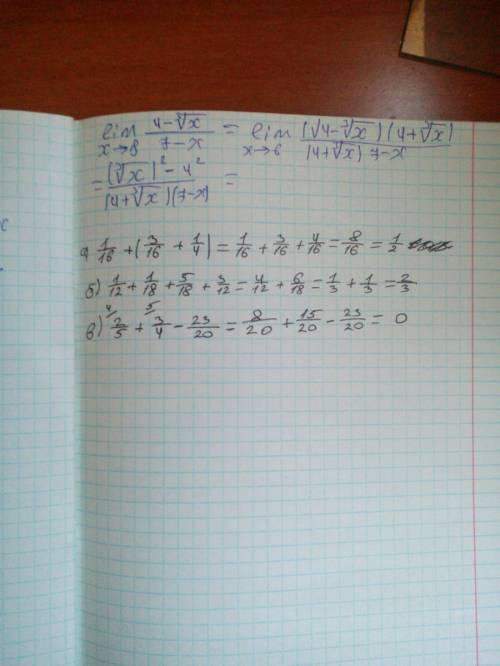 lim x→8 (4-∛x)/(7-x) = lim x→6 ((√4-∛x)(4+∛x))/((4+∛x) 7-x)
= ((∛x)²-4²)/((4+∛x)(7-x)) =
а) 1/16 + (3/16 + 1/4) = 1/16 + 3/16 + 4/16 = 8/16 = 1/2
б) 1/12 + 1/18 + 5/18 + 3/12 = 4/12 + 6/18 = 1/3 + 1/3 = 2/3
в) 2/5 + 3/4 - 23/20 = 8/20 + 15/20 - 23/20 = 0